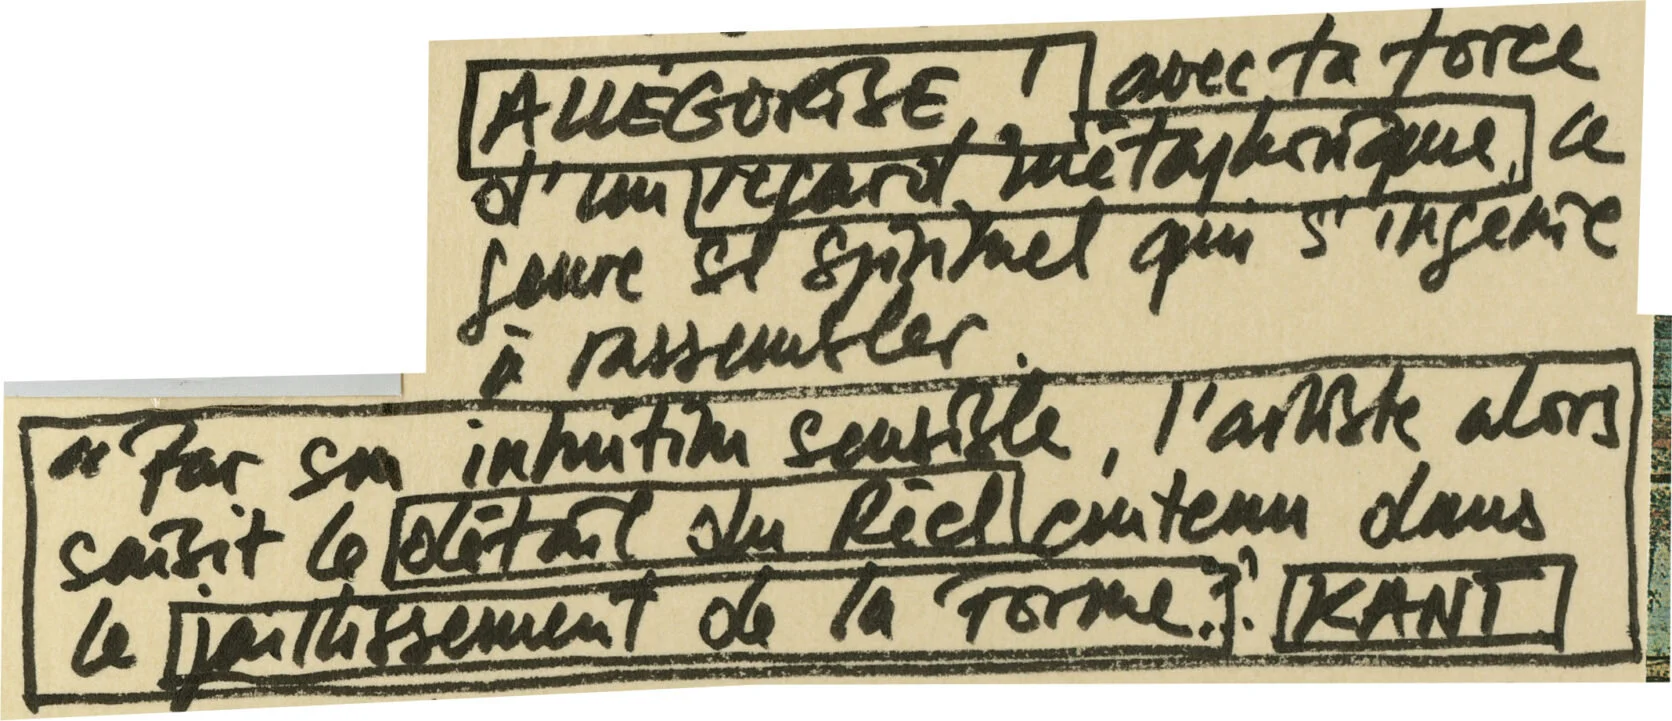 ALLÉGORISE, avec ta force
d'un regard métaphorique, ce
genre si spirituel qui s'ingénie
à rassembler.
"Par son intuition sensible, l'artiste alors
saisit le détail du Réel contenu dans
le jaillissement de la Forme." KANT